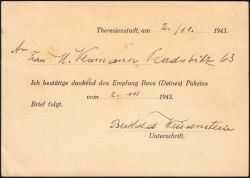 Theresienstadt, am 2./11. 1943.
An
Frau M. Neumann, Pardubitz 63
Ich bestätige dankend den Empfang Ihres (Deines) Paketes
vom 2. 1943.
Brief folgt.
Berthold Feuerstein
Unterschrift.